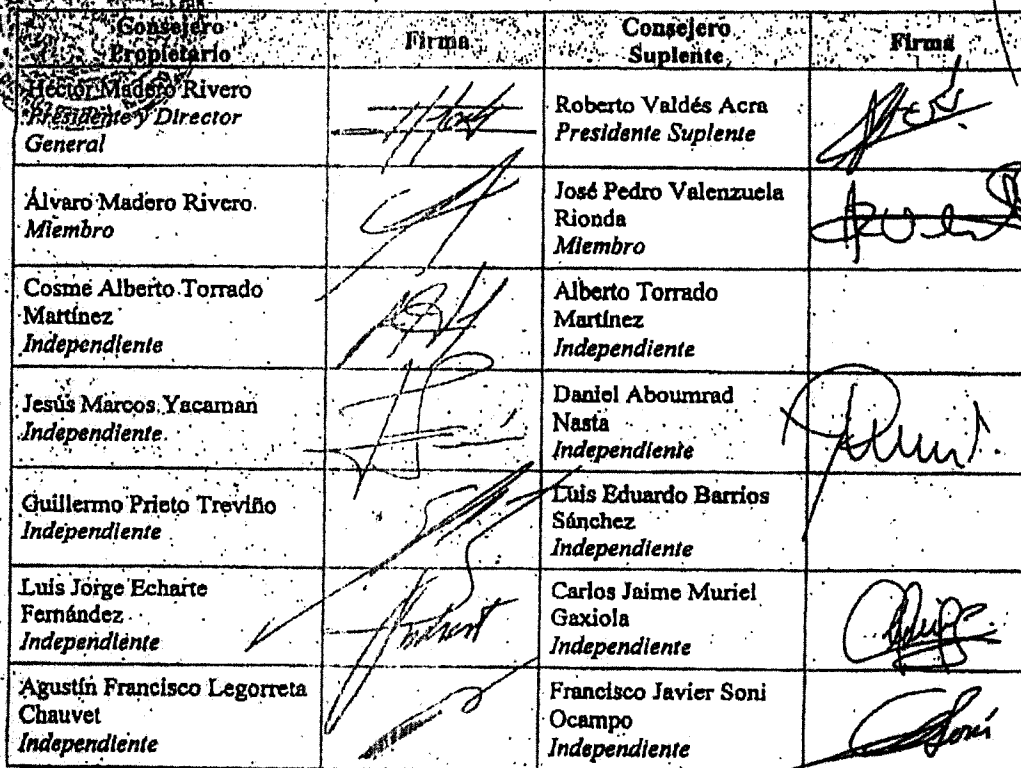 Consejero Propietario
Firma
Consejero Suplente
Firma
Héctor Madero Rivero
Presidente y Director General
Roberto Valdés Acra
Presidente Suplente
Álvaro Madero Rivero
Miembro
José Pedro Valenzuela Rionda
Miembro
Cosme Alberto Torrado Martínez
Independiente
Alberto Torrado Martínez
Independiente
Jesús Marcos Yacaman
Independiente
Daniel Aboumrad Nasta
Independiente
Guillermo Prieto Treviño
Independiente
Luis Eduardo Barrios Sánchez
Independiente
Luis Jorge Echarte Fernández
Independiente
Carlos Jaime Muriel Gaxiola
Independiente
Agustín Francisco Legorreta Chauvet
Independiente
Francisco Javier Soni Ocampo
Independiente